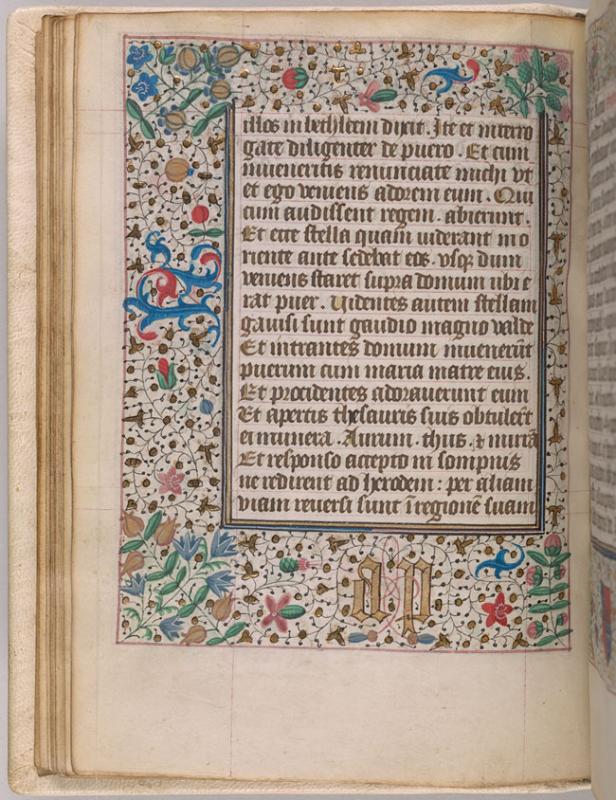 illos in bethleem dixit. Ite et interro
gate diligenter de puero. Et cum
inueneritis renunciate michi vt
et ego veniens adorem eum. Qui
cum audissent regem. abierunt.
Et ecce stella quam uiderant in o
riente ante sedebat eos. vsq dum
veniens staret supra domum ubi e
rat puer. Uidentes autem stellam
gauisi sunt gaudio magno valde
Et intrantes domum inuenerūt
puerum cum maria matre eius.
Et procidentes adorauerunt eum
Et apertis thesauris suis obtulerūt
ei munera. Aurum. thus. & mirrā
Et responso accepto in sompnis
ne redirent ad herodem: per aliam
viam reuersi sunt ī regionē suam